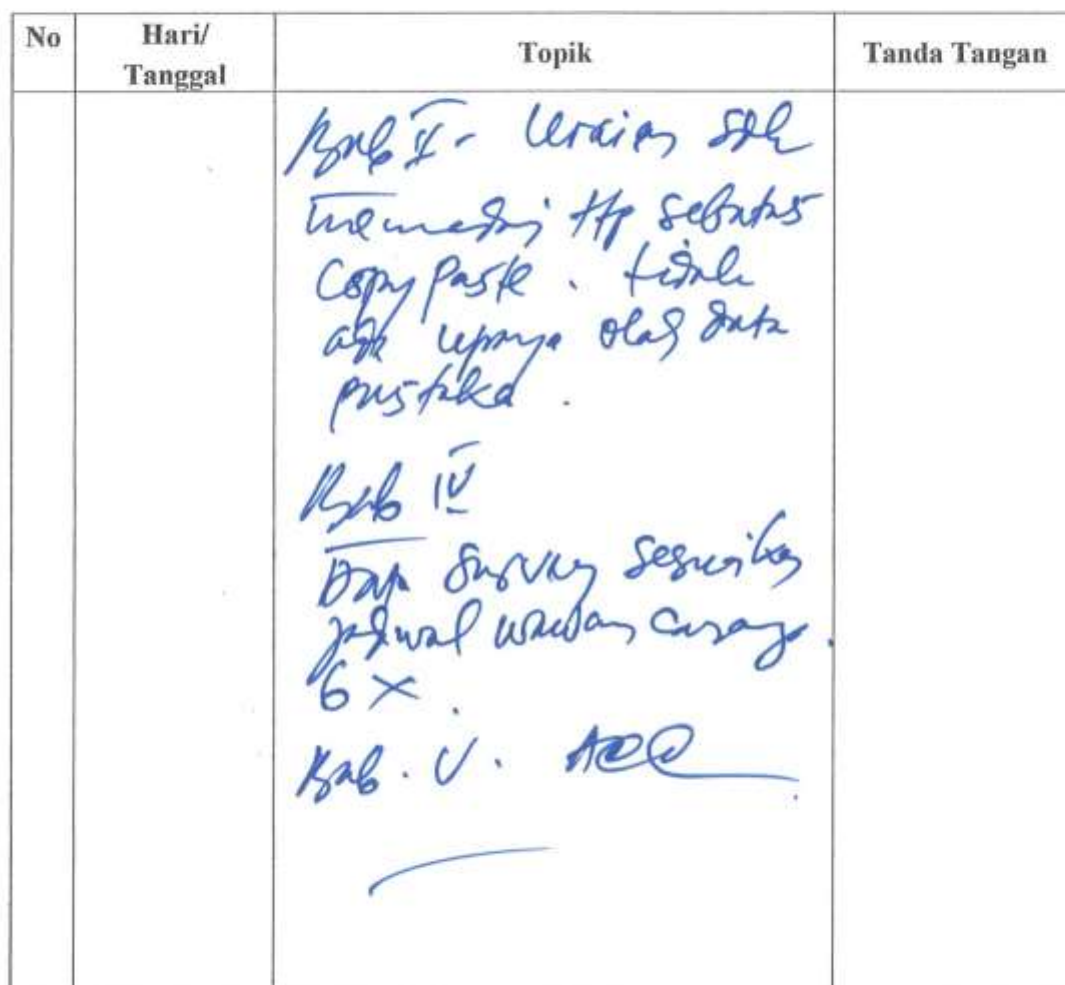 No
Hari/
Tanggal
Topik
Tanda Tangan
Bab II - Uraian sdh
memadai ttp sebatas
Copy Paste . tidak
ada upaya olah data
pustaka .
Bab IV
Data Survey sesuaikan
jadwal wawancara
6 x .
Bab . V . ACC